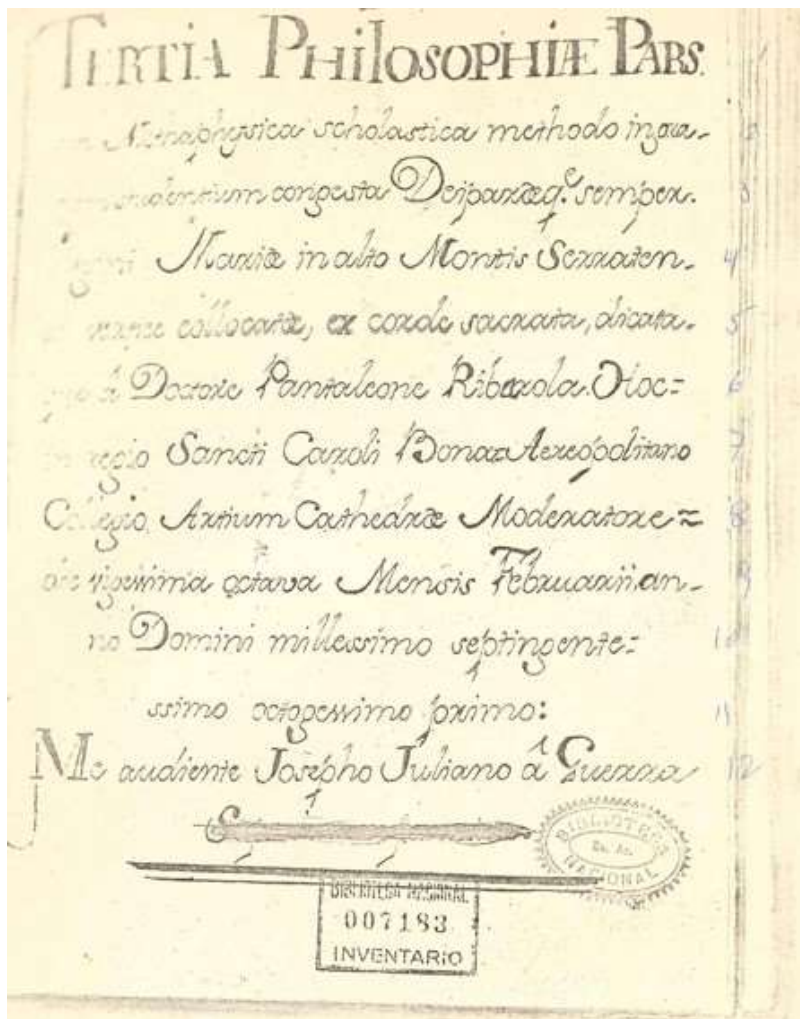 TERTIA PHILOSOPHIÆ PARS.
Methaphysica scholastica methodo in gra- 2
congesta Deiparæq.e semper. 3
Mariæ in alto Montis Serraten- 4
collocatæ, ex corde sacrata, dicata. 5
à Doctore Pantaleone Ribarola. Hoc= 6
regio Sancti Caroli Bonaæreopolitano 7
Collegio, Artium Cathedræ Moderatore= 8
die vigessima octava Mensis Februarii, an- 9
no Domini millessimo septingente= 10
ssimo octogessimo primo: 11
Me audiente Josepho Juliano â Guerra 12
BIBLIOTECA
Bs. As.
NACIONAL
BIBLIOTECA NACIONAL
007183
INVENTARIO